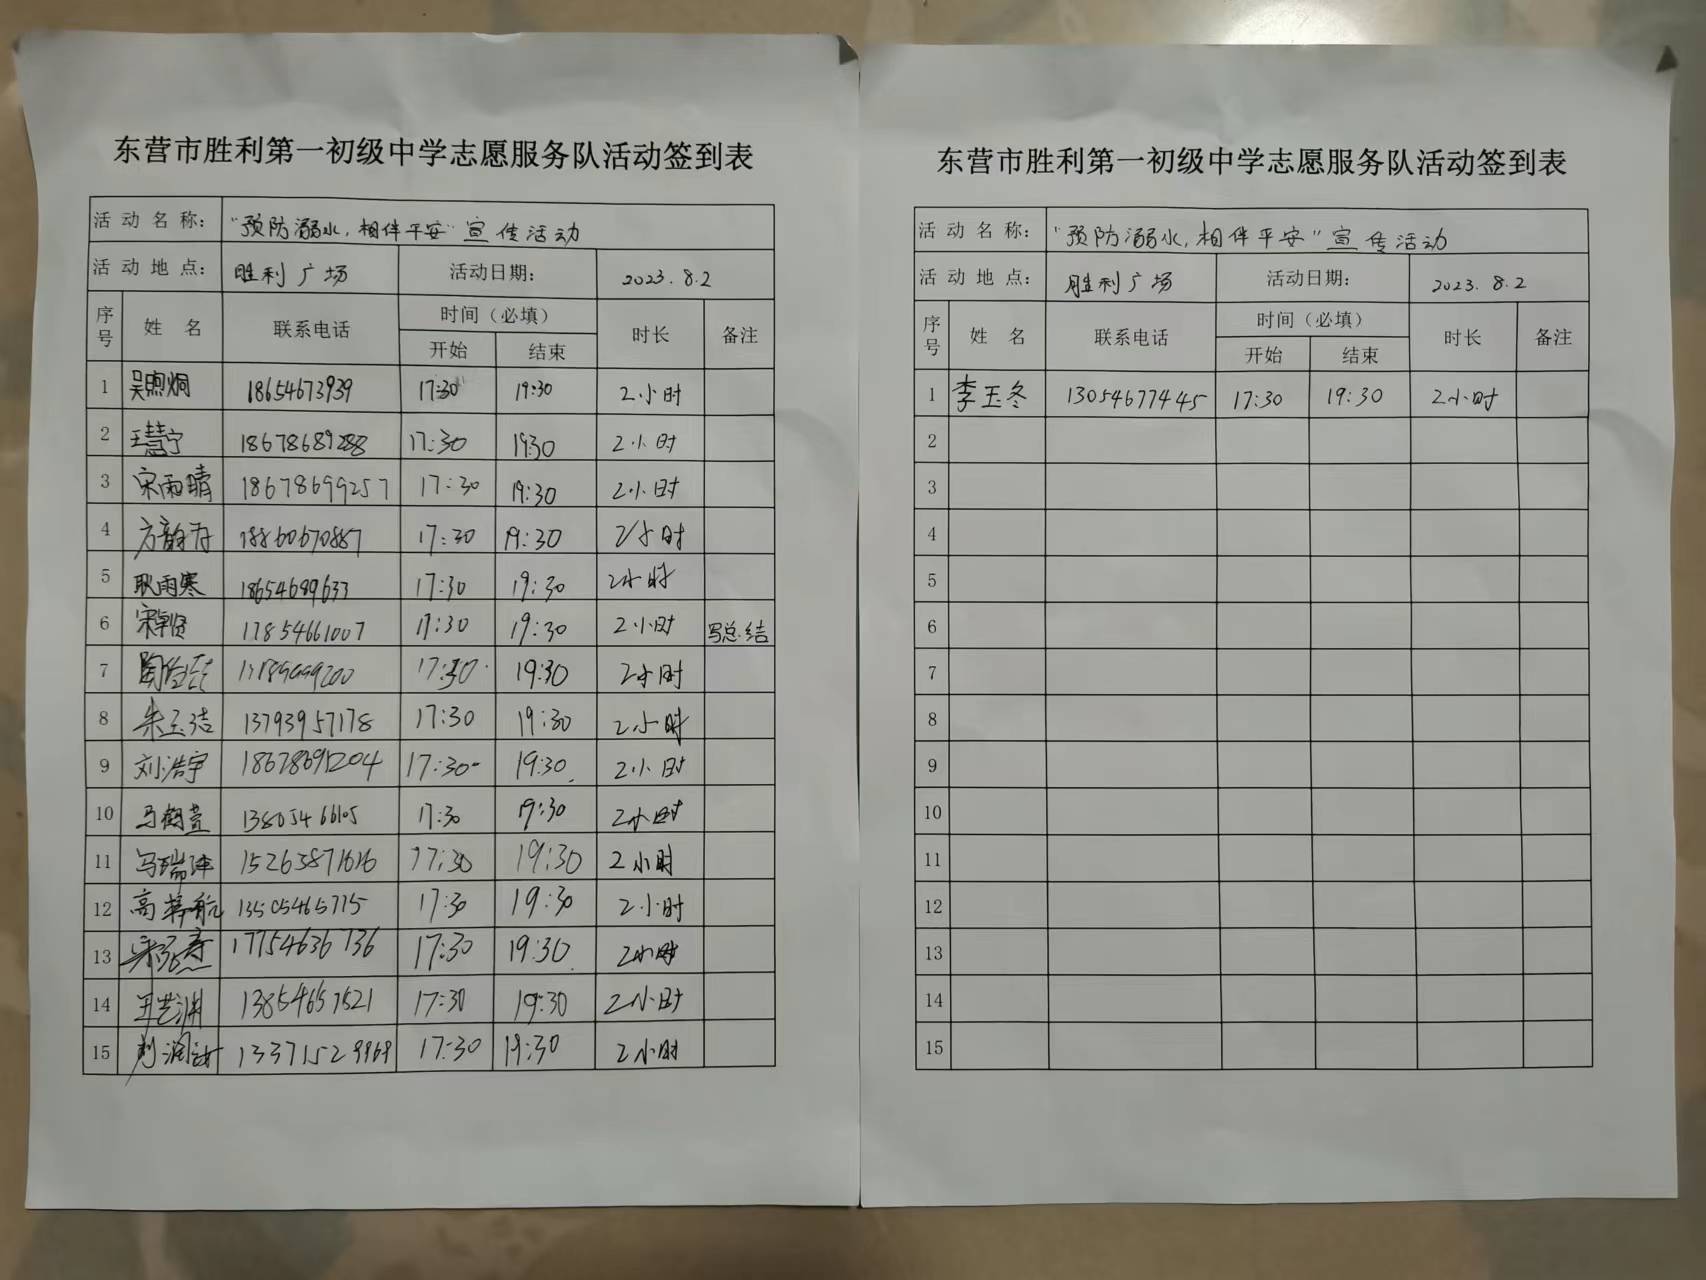 东营市胜利第一初级中学志愿服务队活动签到表
活动名称: “预防溺水,相伴平安”宣传活动
活动地点: 胜利广场 活动日期: 2023.8.2
序号 姓名 联系电话 时间(必填) 时长 备注
开始 结束
1 吴煦炯 18654673939 17:30 19:30 2小时
2 王慧宁 18678689288 17:30 19:30 2小时
3 宋雨晴 18678699257 17:30 19:30 2小时
4 18860670887 17:30 19:30 2小时
5 耿雨寒 18654689633 17:30 19:30 2小时
6 17854661007 17:30 19:30 2小时 写总结
7 17:30 19:30 2小时
8 朱玉洁 13793957178 17:30 19:30 2小时
9 刘浩宇 17:30 19:30 2小时
10 马鹤萱 13805466105 17:30 19:30 2小时
11 15263871616 17:30 19:30 2小时
12 高梓航 13505465715 17:30 19:30 2小时
13 17754636736 17:30 19:30 2小时
14 王艺渊 13854657521 17:30 19:30 2小时
15 13371529969 17:30 19:30 2小时
东营市胜利第一初级中学志愿服务队活动签到表
活动名称: “预防溺水,相伴平安”宣传活动
活动地点: 胜利广场 活动日期: 2023.8.2
序号 姓名 联系电话 时间(必填) 时长 备注
开始 结束
1 李玉冬 13054677445 17:30 19:30 2小时
2
3
4
5
6
7
8
9
10
11
12
13
14
15